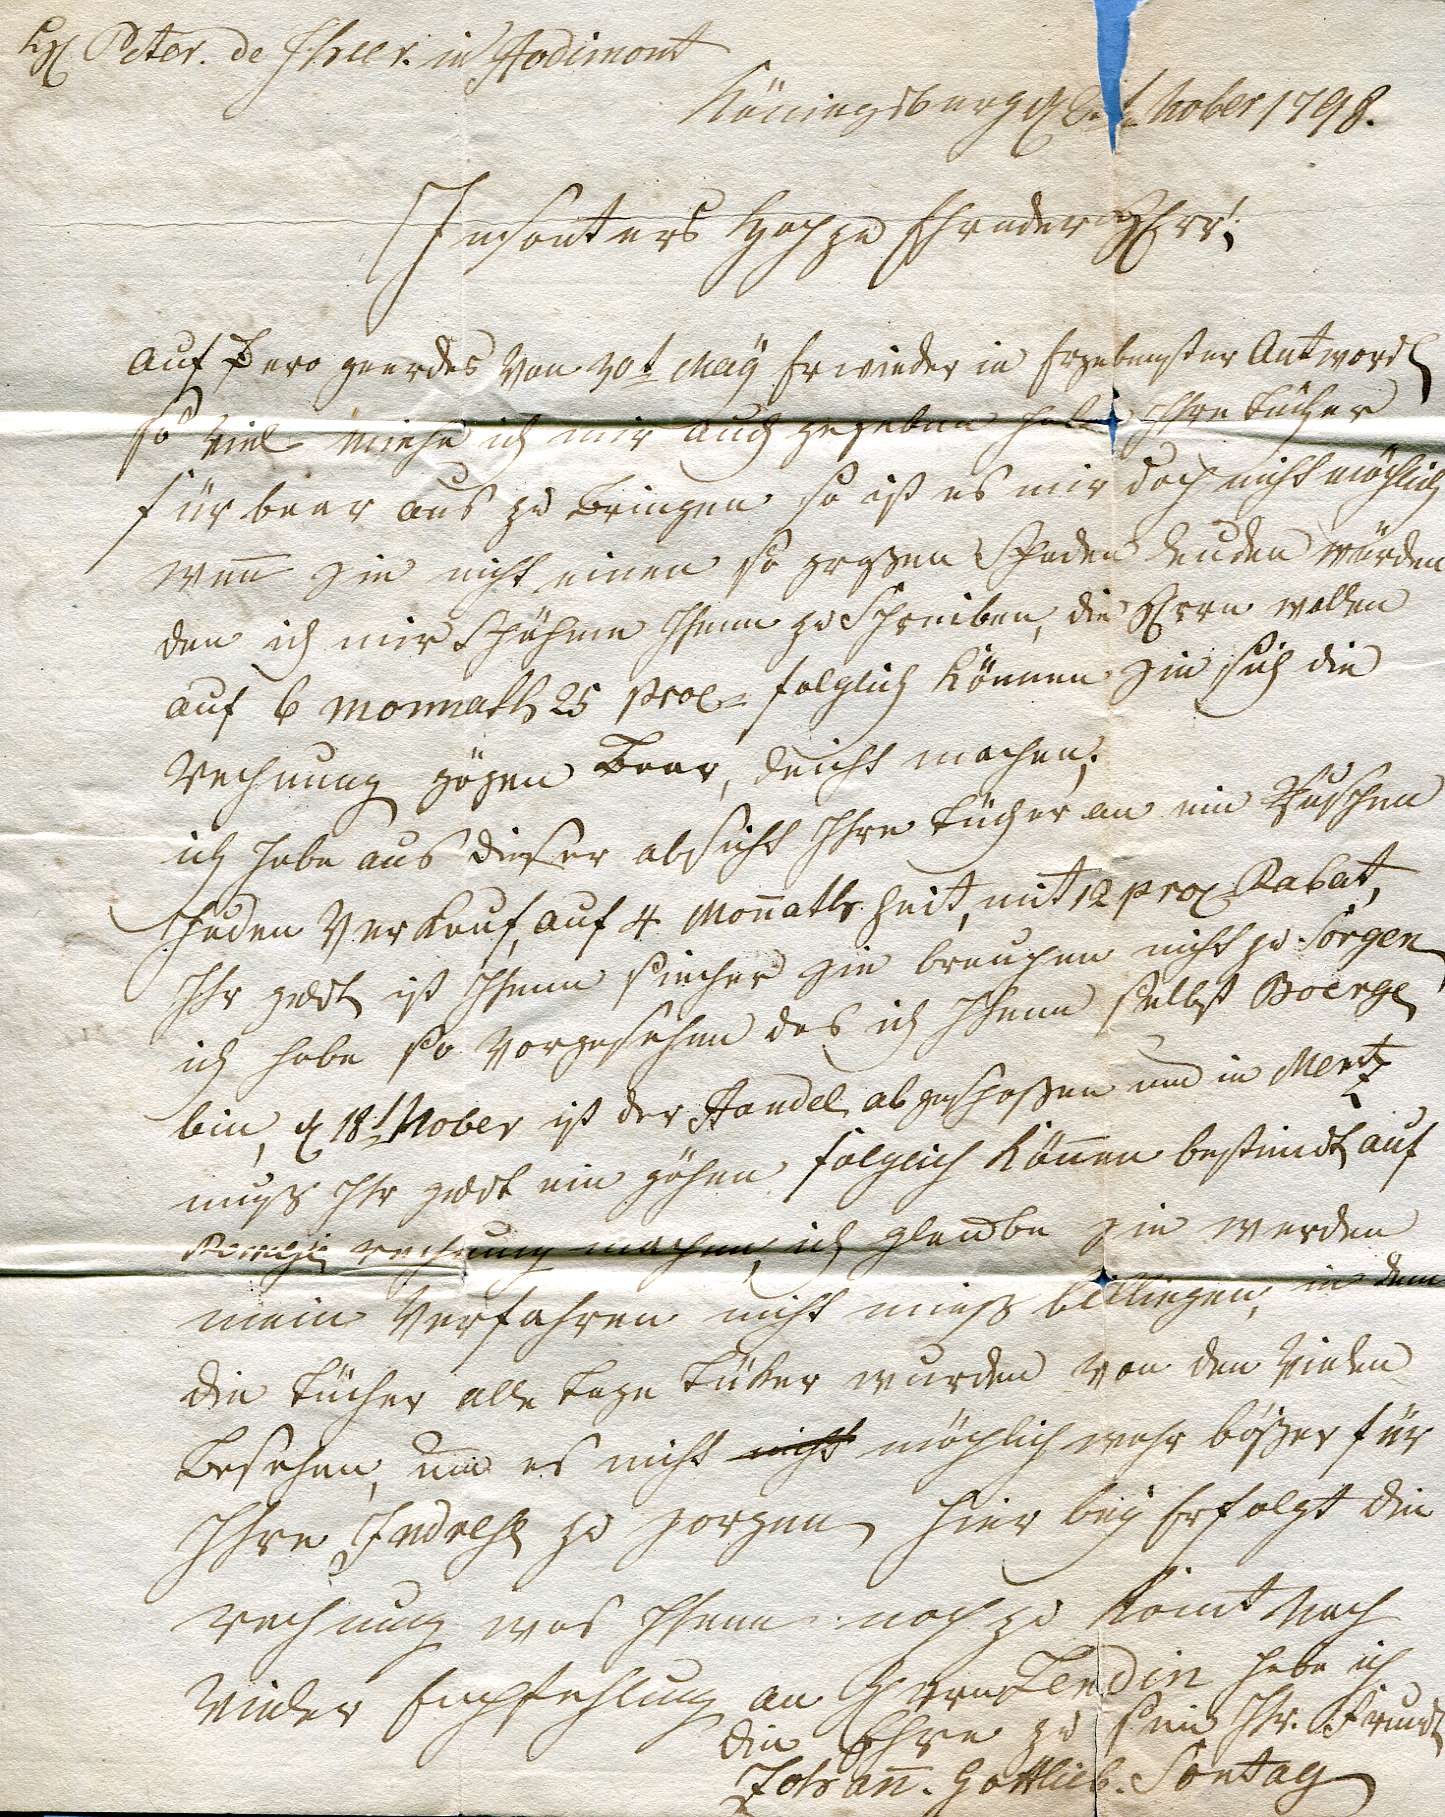 Peter. de Théer. in Hodimont
Köningsberg Nober 1798.
Insonders Hoch zu Ehrender Herr;
auf Dero geerdes von 20t May Erwieder in Ergebenster Antwordt
so viel Miehe ich mir auch gegeben habe Ihre Tücher
für baar aus zu bringen so ist es mir doch nicht möchlich
wenn Sie nicht einen so großen Schaden leuden würden
den ich mir schähme Ihnen zu Schreiben, die Herrn wollen
auf 6 Monnath 25 Proc folglich können Sie sich die
Rechnung gögen Baar, leicht machen,
ich habe aus dieser absicht Ihre Tücher an ein Ruschen
Juden Verkauf, auf 4 Monnath Zeit, mit 12 Proc Rabat,
Ihr geldt ist Ihnen siecher Sie brauchen nicht zu Sorgen
ich habe so vorgesehen das ich Ihnen selbst Boerge
bin, d 18t Nober ist der Handel abgeschoßen und in Mertz
muß Ihr geldt ein göhen folglich können bestimdt auf
rechnung machen, ich glaube Sie werden
mein Verfahren nicht mieß billiegen, in dem
die Tücher alle Tage wurden von den Vielen
Besehen, und es nicht nicht möchlich wahr bößer für
Ihre Indreße zu sorgen, hier bey Erfolgt die
rechnung was Ihnen noch zu kömt Nach
Vieler Empfehlung an Herrn habe ich
die Ehre zu sein Ihr. Freundt
Johann. Gottlieb. Sontag